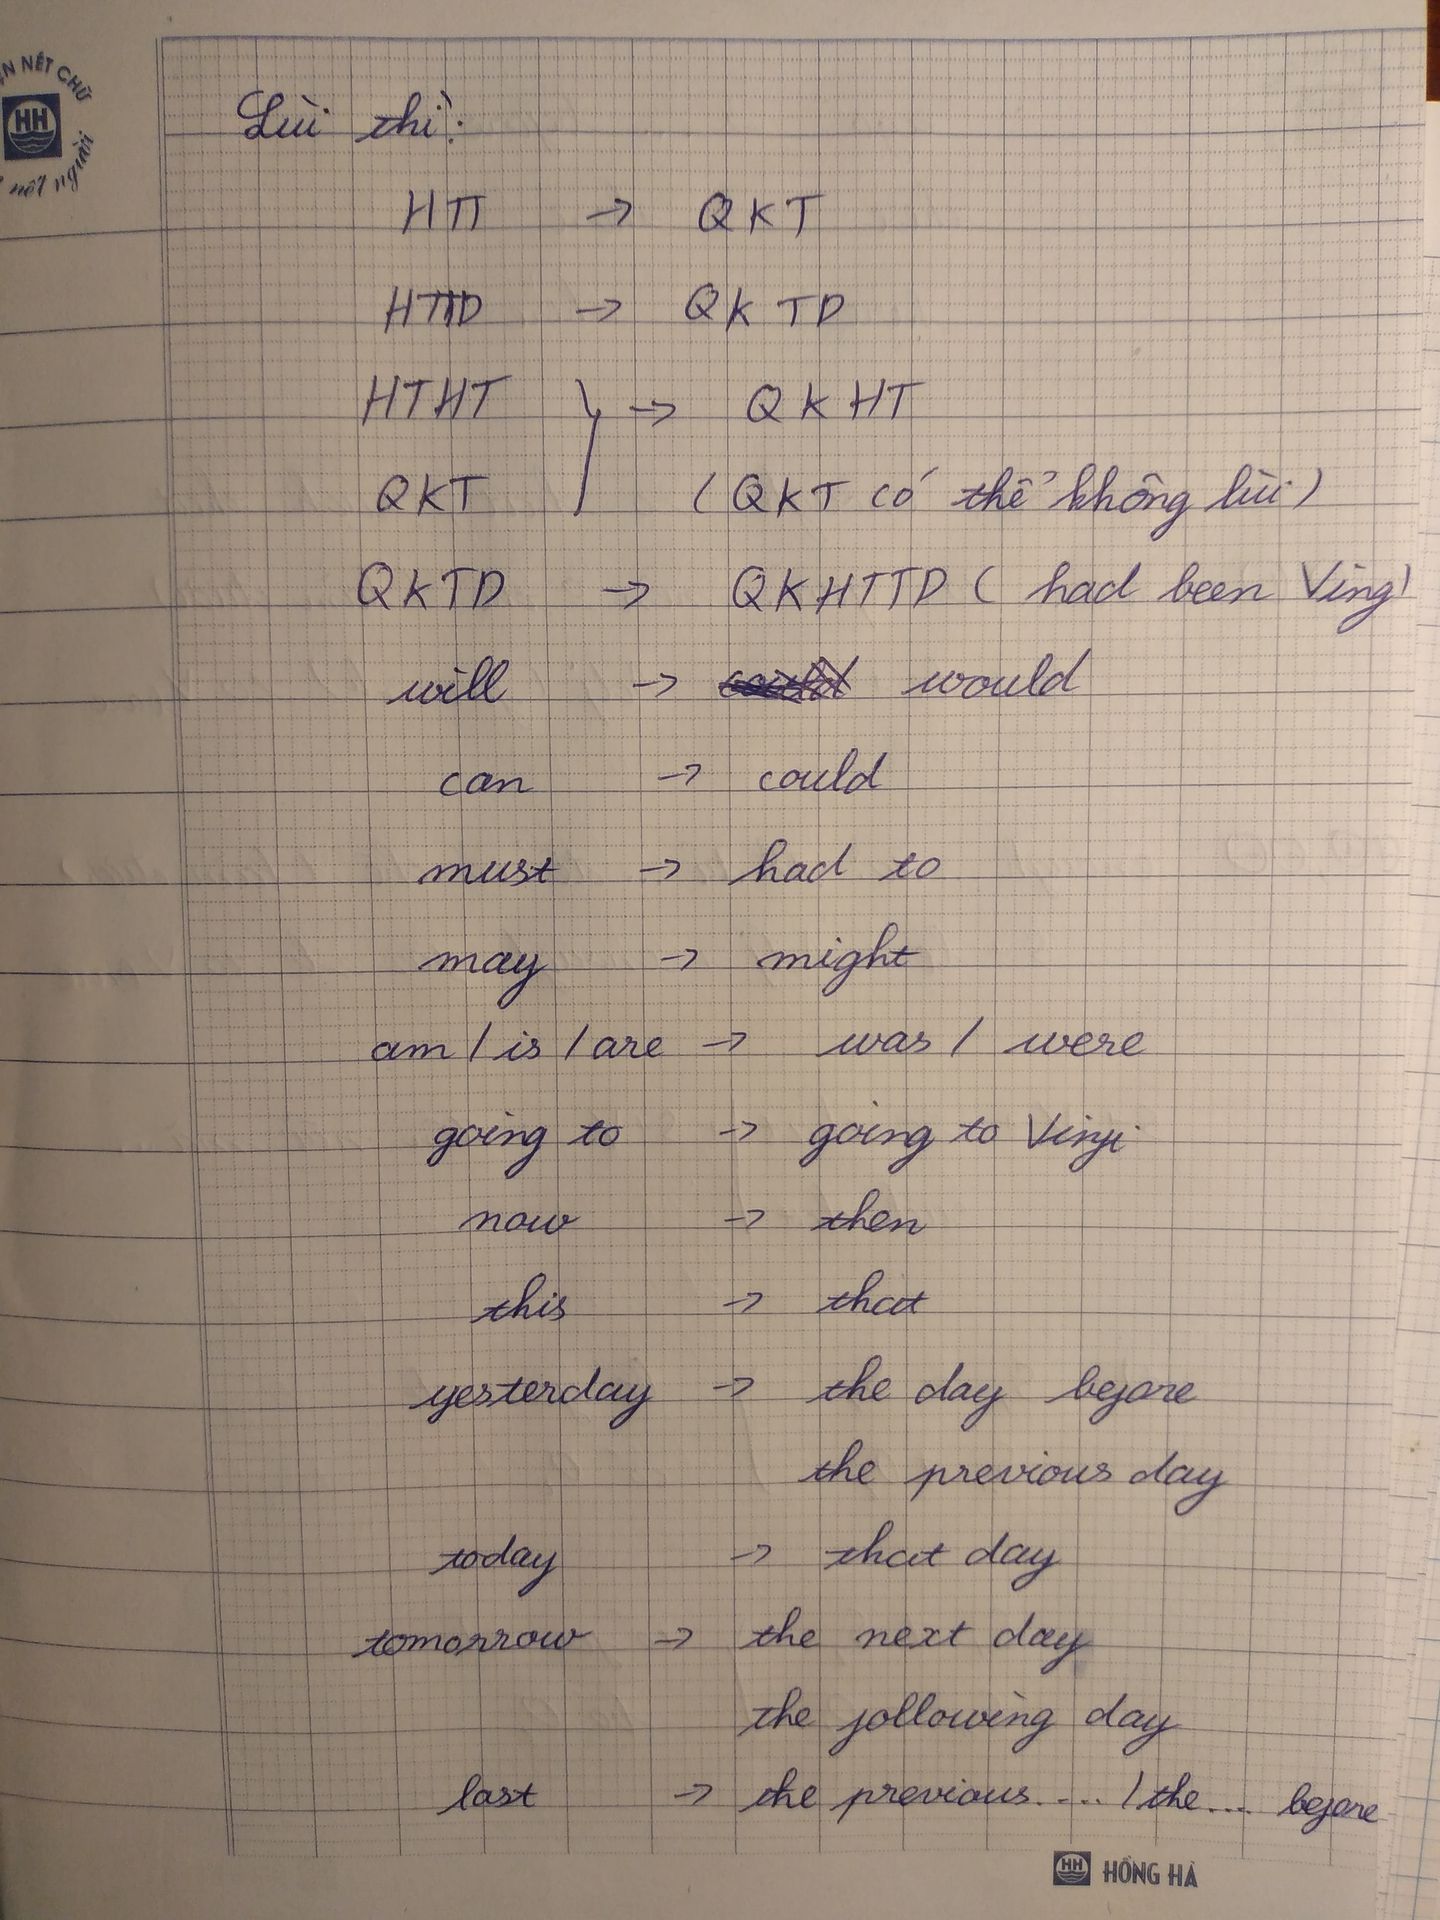 N NÉT CHỮ
HH
nết người
Lùi thì:
HTT → QKT
HTTD → QKTD
HTHT } → QKHT
QKT (QKT có thể không lùi)
QKTD → QKHTTD (had been Ving)
will → would
can → could
must → had to
may → might
am / is / are → was / were
going to → going to Ving
now → then
this → that
yesterday → the day before
the previous day
today → that day
tomorrow → the next day
the following day
last → the previous.... / the.... before
HH HỒNG HÀ